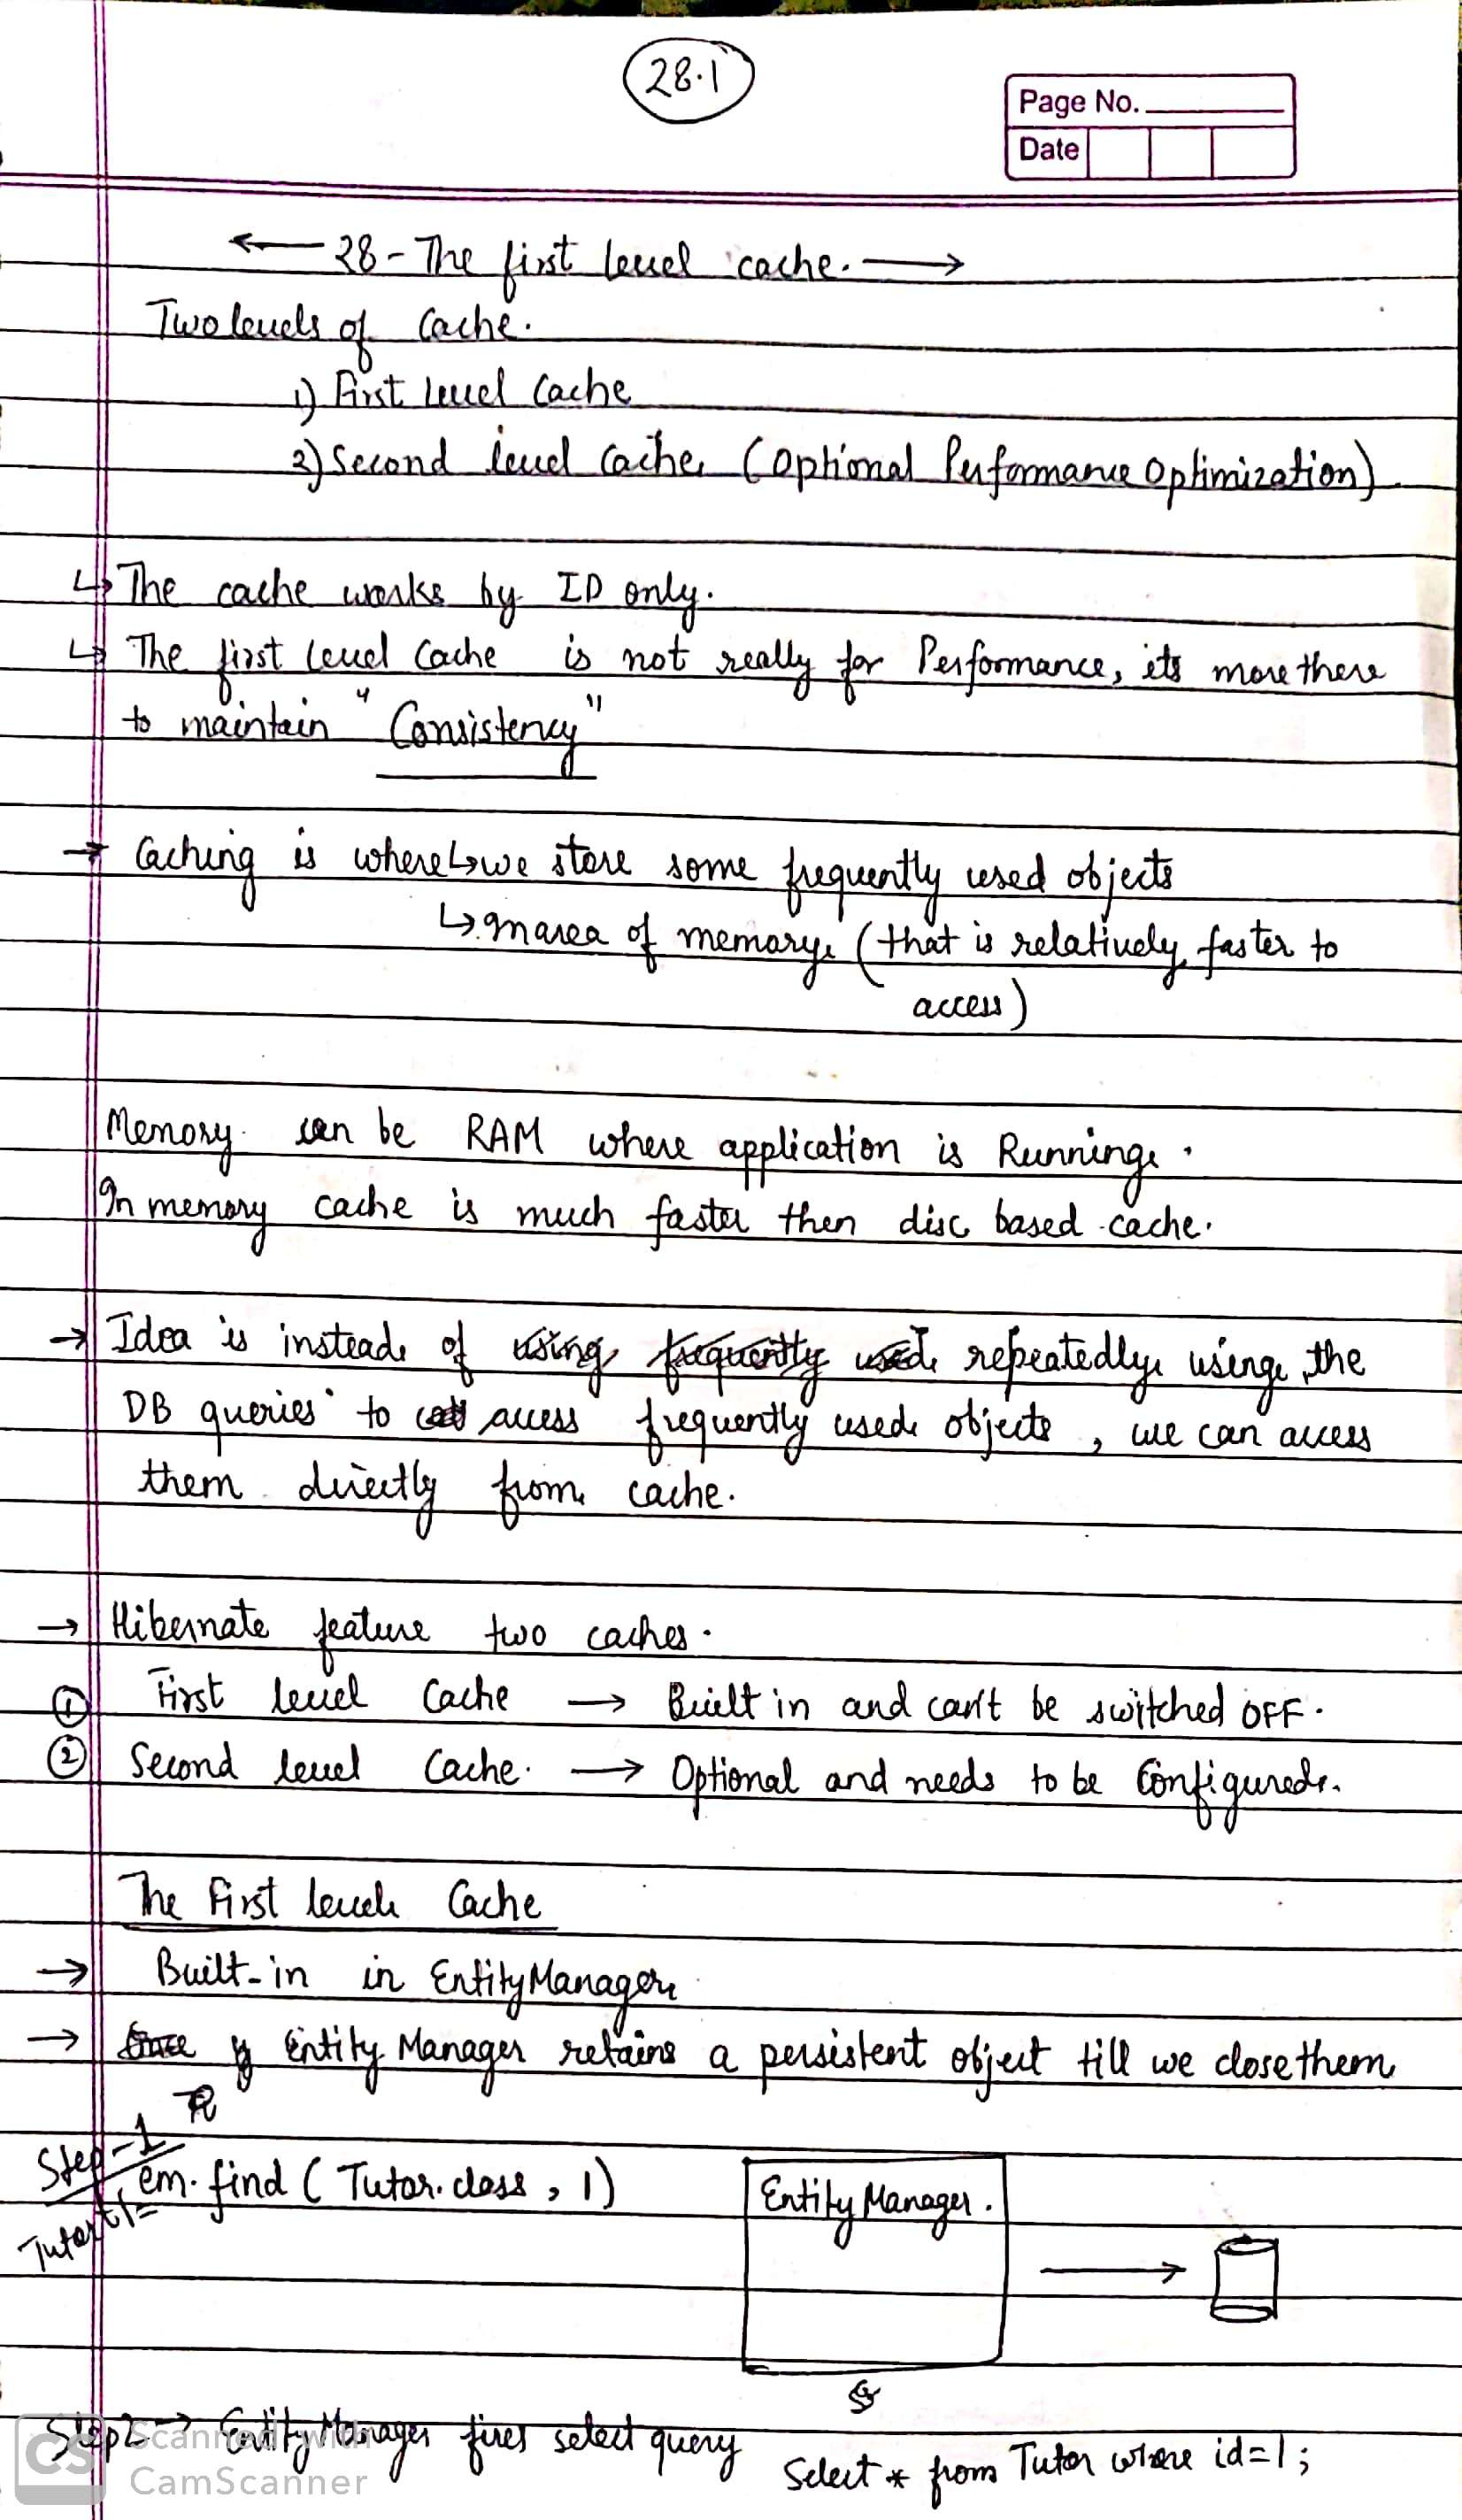 28.1
Page No.
Date
← 28 - The first level cache. →
Two levels of Cache.
1) First Level Cache
2) Second level Cache (Optional Performance Optimization).
↳ The cache works by ID only.
↳ The first level Cache is not really for Performance, its more there
to maintain "Consistency"
→ Caching is where ↳ we store some frequently used objects
↳ In area of memory. (that is relatively faster to
access)
Memory can be RAM where application is Running.
In memory cache is much faster then disc based cache.
→ Idea is instead of using frequently used repeatedly using the
DB queries to access frequently used objects, we can access
them directly from cache.
→ Hibernate feature two caches.
① First level Cache → Built in and can't be switched OFF.
② Second level Cache. → Optional and needs to be Configured.
The First level Cache
→ Built-in in EntityManager
→ Entity Manager retains a persistent object till we close them
Step-1
em.find ( Tutor.class , 1)
Tutor t1 =
Entity Manager.
Step 2 → Entity Manager fires select query
Select * from Tutor where id=1;
CS
Scanned with
CamScanner